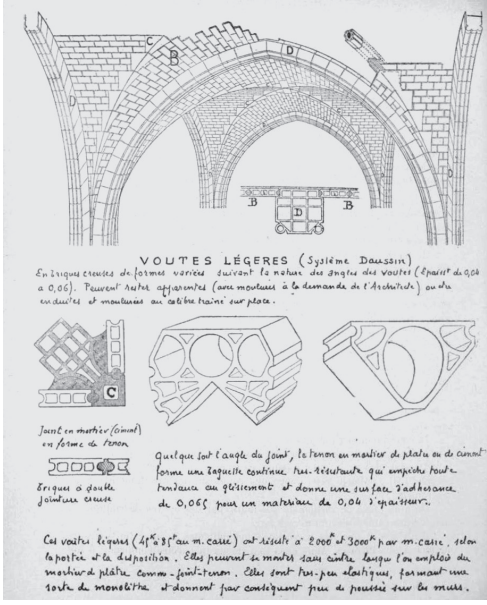 C
B
D
D
D
D
B
D
B
VOUTES LÉGÈRES (Système Daussin)
En briques creuses de formes variées suivant la nature des angles des voutes (Epaiss.r de 0,04
a 0,06). Peuvent rester apparentes (avec moulures à la demande de l'Architecte) ou etre
enduites et moulurées au calibre trainé sur place.
C
Joint en mortier (ciment)
en forme de tenon
Briques a double
jointure creuse
Quelque soit l'angle du joint, le tenon en mortier de platre ou de ciment
forme une baguette continue tres-résistante qui empêche toute
tendance au glissement et donne une surface d'adhérance
de 0,065 pour un materiau de 0,04 d'epaisseur.
Ces voutes légères (45K à 85K au m. carré) ont résisté à 2000K et 3000K par m. carré, selon
la portée et la disposition. Elles peuvent se monter sans cintre lorsque l'on emploie du
mortier de plâtre comme joint-tenon. Elles sont tres-peu elastiques, formant une
sorte de monolithe et donnant par conséquent peu de poussée sur les murs.